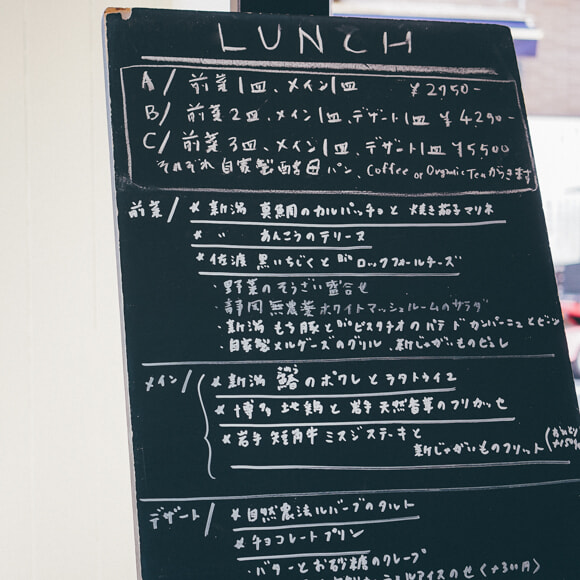 LUNCH
A/ 前菜1皿、メイン1皿 ¥2950-
B/ 前菜2皿、メイン1皿、デザート1皿 ¥4290-
C/ 前菜3皿、メイン1皿、デザート1皿 ¥5500
それぞれ自家製パン、Coffee or Organic Teaがつきます
前菜/ * 新潟 真鯛のカルパッチョと焼き茄子マリネ
* 〃 あんこうのテリーヌ
* 佐渡 黒いちじくとBioロックフォールチーズ
・野菜のそうざい盛合せ
・静岡 無農薬ホワイトマッシュルームのサラダ
・新潟 もち豚とBioピスタチオのパテ ド カンパーニュ
・自家製メルゲーズのグリル、新じゃがいものピュレ
メイン/ * 新潟 鰆のポワレとラタトゥイユ
* 博多 地鶏と岩手 天然香茸のフリカッセ
* 岩手 短角牛 ミスジステーキと
新じゃがいものフリット
デザート/ * 自然農法ルバーブのタルト
* チョコレートプリン
・バターとお砂糖のクレープ
アイスのせ